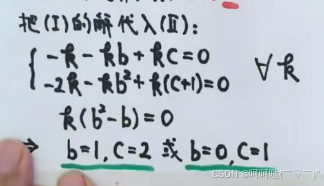 把(I)的解代入(II):
{ -k-kb+kc=0
-2k-kb²+k(c+1)=0 ∀k
k(b²-b)=0
⇒ b=1, c=2 或 b=0, c=1